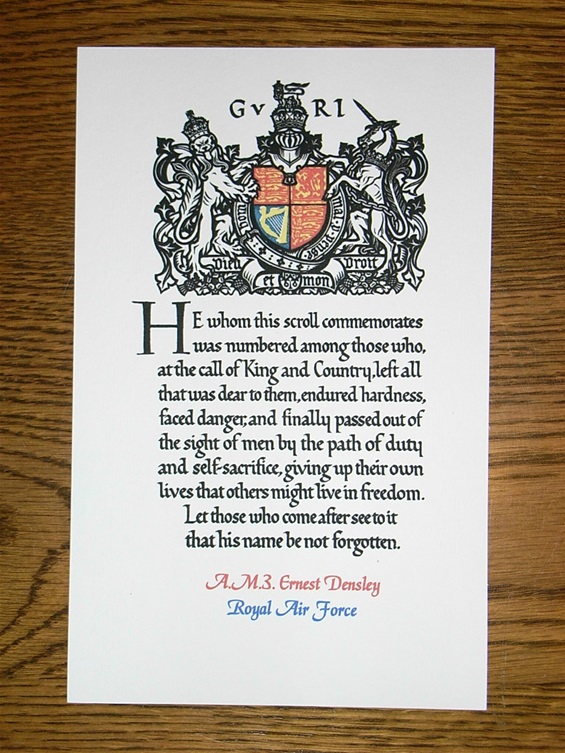 G V R I
Honi soit qui mal y pense
Dieu et mon Droit
HE whom this scroll commemorates
was numbered among those who,
at the call of King and Country, left all
that was dear to them, endured hardness,
faced danger, and finally passed out of
the sight of men by the path of duty
and self-sacrifice, giving up their own
lives that others might live in freedom.
Let those who come after see to it
that his name be not forgotten.
A.M.3. Ernest Densley
Royal Air Force